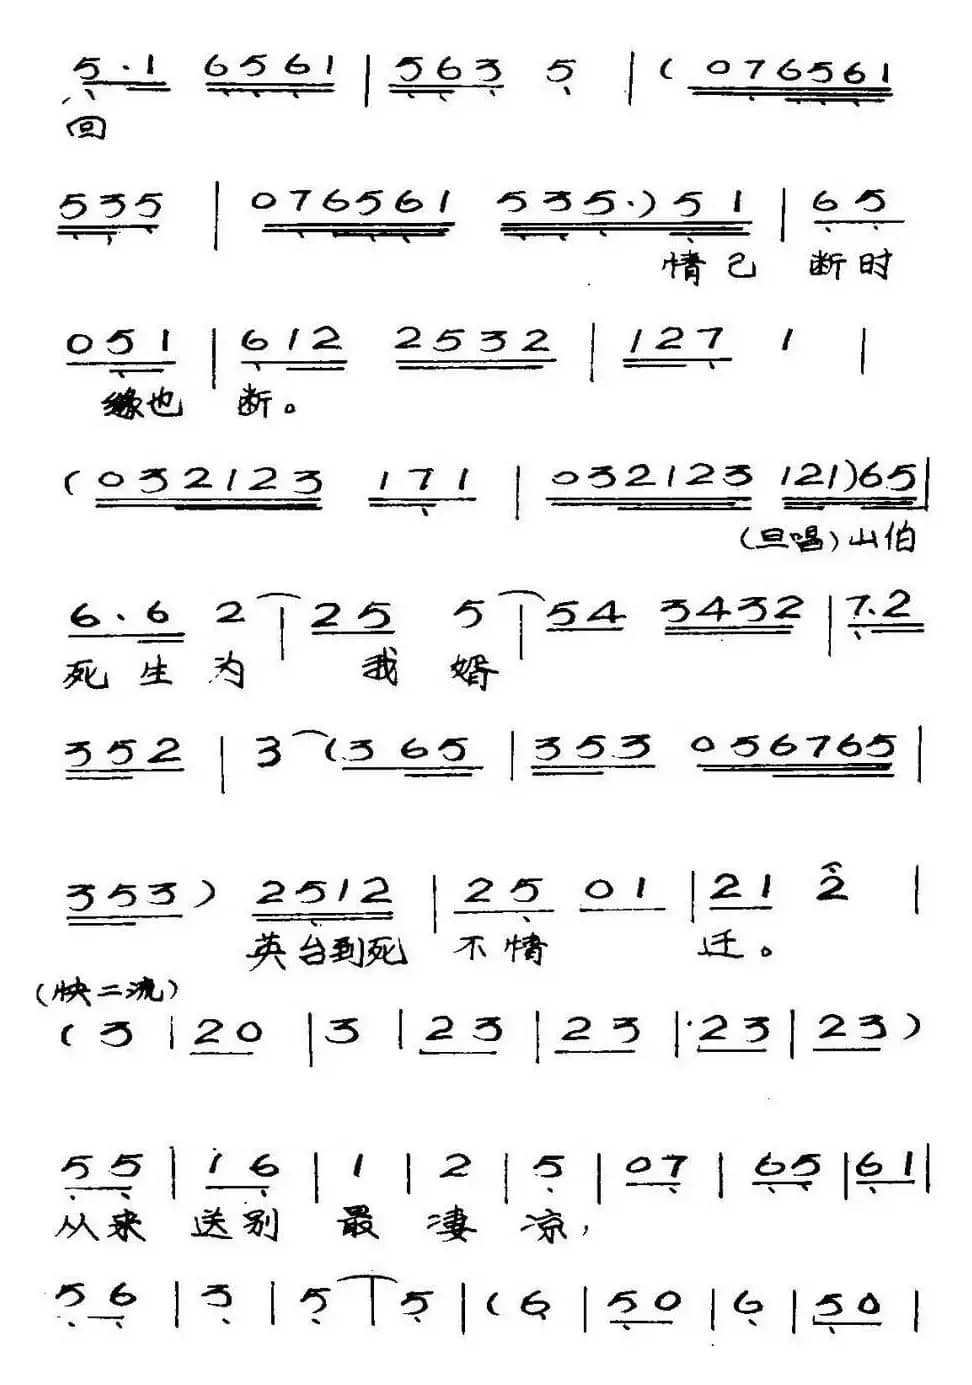 5·1 6561 | 563 5 | (076561
回
535 | 076561 535·) 51 | 65
情己 断时
051 | 612 2532 | 127 1 |
缘也 断。
(032123 171 | 032123 121)65|
(旦唱)山伯
6·6 2 | 25 5 | 54 3432 | 7·2
死生为 我婿
352 | 3 (3 65 | 353 056765 |
353) 2512 | 25 01 | 21 2 |
英台到死 不情 迁。
(快二流)
(3 | 20 | 3 | 23 | 23 | ·23 | 23)
55 | 16 | 1 | 2 | 5 | 07 | 65 | 61 |
从来 送别 最 凄 凉,
56 | 3 | 5 | 5 | (6 | 50 | 6 | 50 |